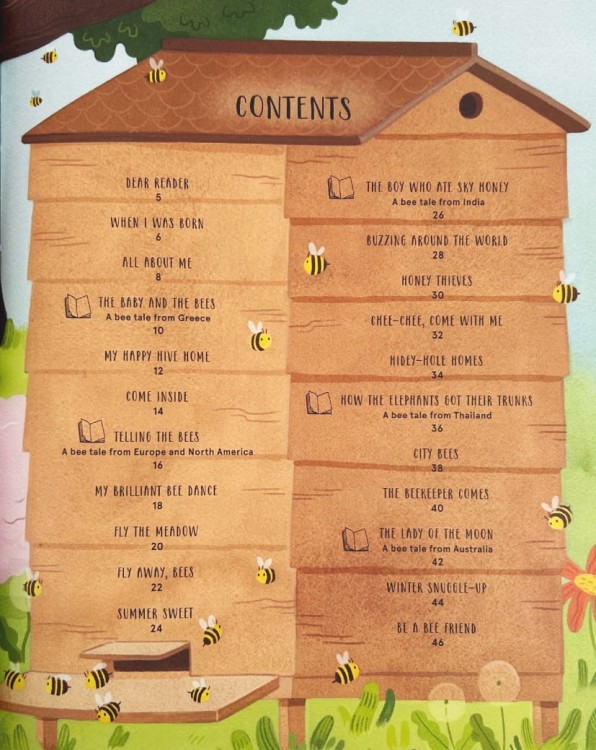 CONTENTS
DEAR READER
5
WHEN I WAS BORN
6
ALL ABOUT ME
8
THE BABY AND THE BEES
A bee tale from Greece
10
MY HAPPY HIVE HOME
12
COME INSIDE
14
TELLING THE BEES
A bee tale from Europe and North America
16
MY BRILLIANT BEE DANCE
18
FLY THE MEADOW
20
FLY AWAY, BEES
22
SUMMER SWEET
24
THE BOY WHO ATE SKY HONEY
A bee tale from India
26
BUZZING AROUND THE WORLD
28
HONEY THIEVES
30
CHEE-CHEE, COME WITH ME
32
HIDEY-HOLE HOMES
34
HOW THE ELEPHANTS GOT THEIR TRUNKS
A bee tale from Thailand
36
CITY BEES
38
THE BEEKEEPER COMES
40
THE LADY OF THE MOON
A bee tale from Australia
42
WINTER SNUGGLE-UP
44
BE A BEE FRIEND
46